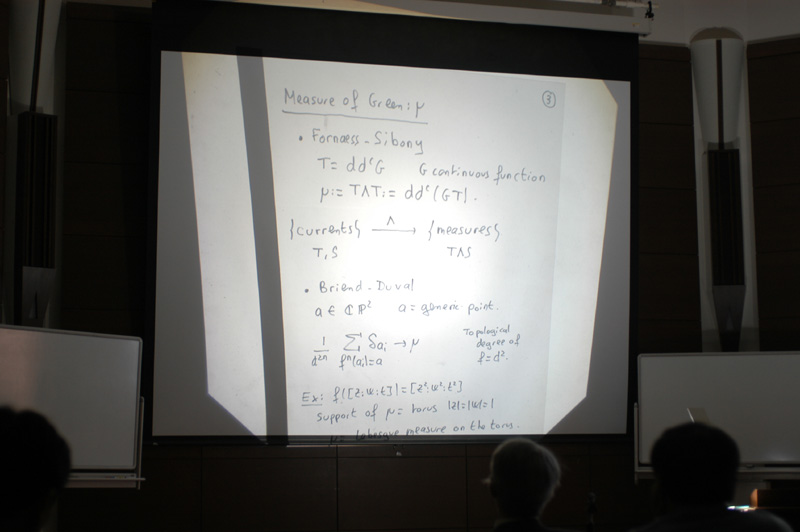 Measure of Green: μ
③
• Fornaess - Sibony
T = dd^c G   G continuous function
μ := T∧T := dd^c (GT).
{currents} —∧→ {measures}
T, S   T∧S
• Briend - Duval
a ∈ ℂℙ²   a = generic point.
1/d^{2n} ∑_{f^n(a_i)=a} δ_{a_i} → μ   Topological degree of f = d².
Ex: f([z:w:t]) = [z²:w²:t²]
support of μ = torus |z|=|w|=1
Lebesgue measure on the torus.